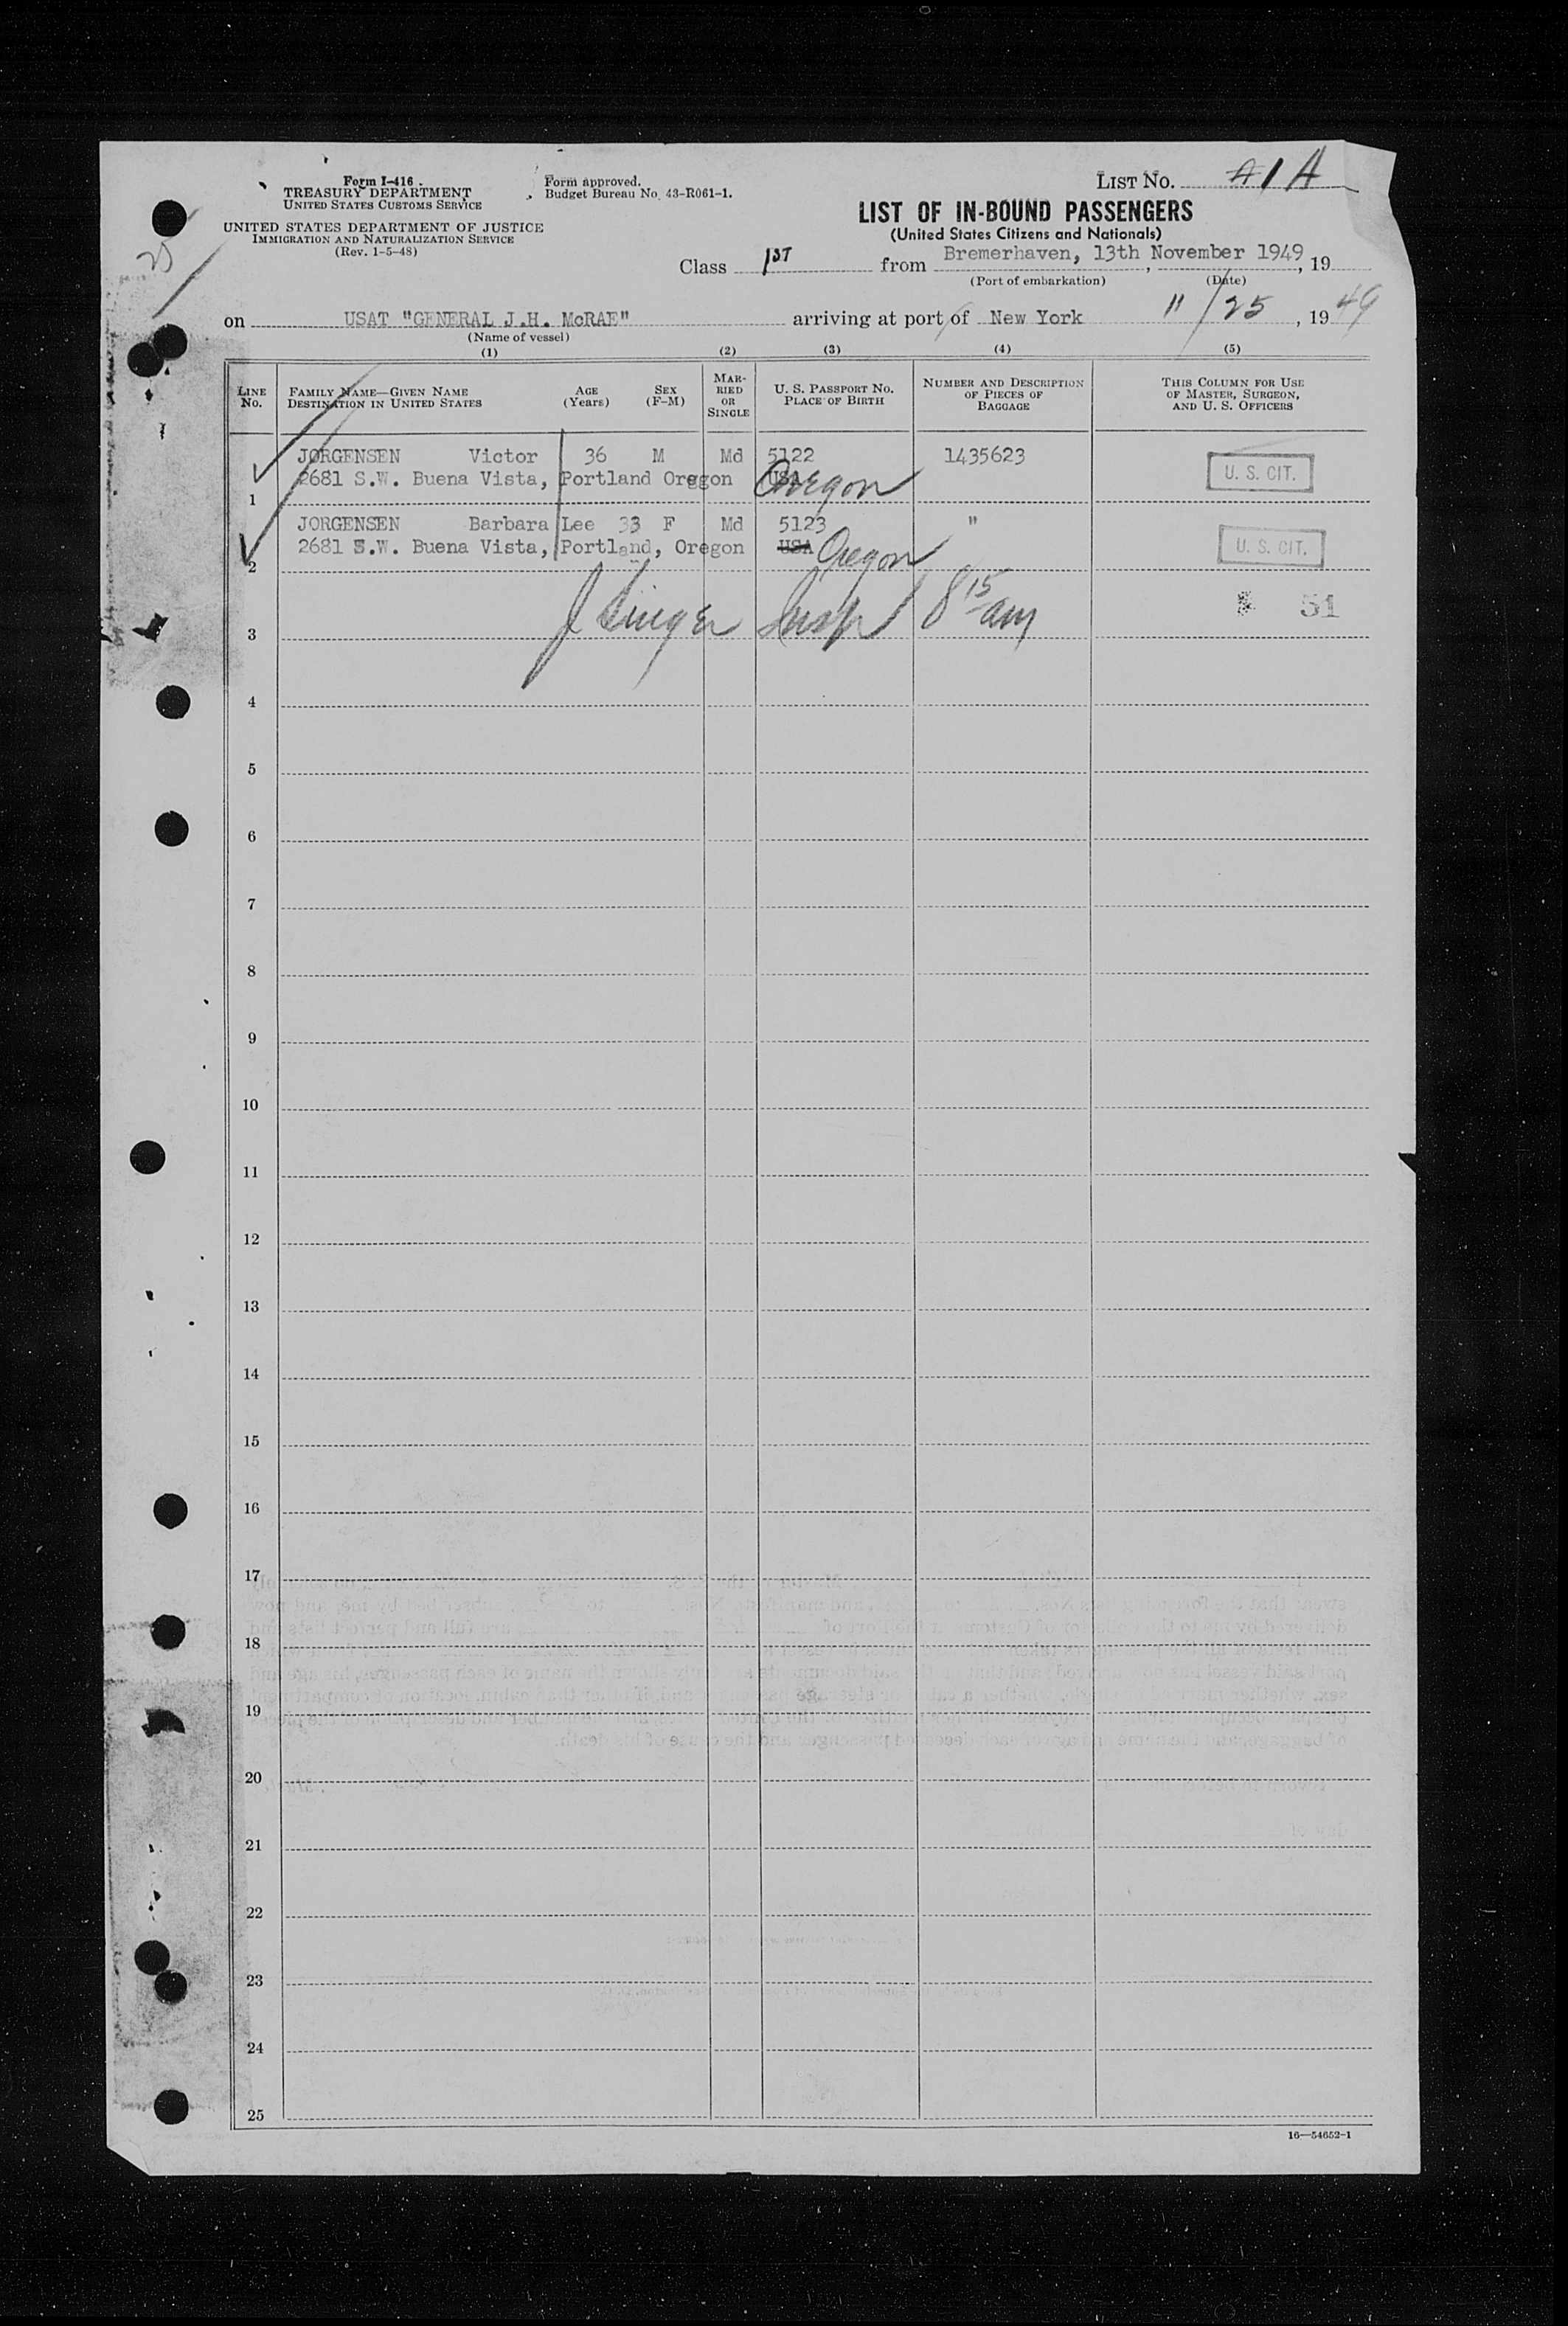 Form I-416
TREASURY DEPARTMENT
UNITED STATES CUSTOMS SERVICE
UNITED STATES DEPARTMENT OF JUSTICE
IMMIGRATION AND NATURALIZATION SERVICE
(Rev. 1-5-48)
Form approved.
Budget Bureau No. 43-R061-1.
LIST NO. 1 A
LIST OF IN-BOUND PASSENGERS
(United States Citizens and Nationals)
Class 1ST from Bremerhaven, 13th November 1949, 19
(Port of embarkation) (Date)
25
on USAT "GENERAL J.H. McRAE" arriving at port of New York 11/25, 1949
(Name of vessel)
(1) (2) (3) (4) (5)
LINE NO. FAMILY NAME—GIVEN NAME DESTINATION IN UNITED STATES AGE (Years) SEX (F-M) MARRIED OR SINGLE U. S. PASSPORT NO. PLACE OF BIRTH NUMBER AND DESCRIPTION OF PIECES OF BAGGAGE THIS COLUMN FOR USE OF MASTER, SURGEON, AND U. S. OFFICERS
JORGENSEN Victor 36 M Md 5122 1435623 U. S. CIT.
1 2681 S.W. Buena Vista, Portland Oregon USA Oregon
JORGENSEN Barbara Lee 33 F Md 5123 " U. S. CIT.
2 2681 S.W. Buena Vista, Portland, Oregon USA Oregon
3 J Singer Insp 8 15 am 51
4
5
6
7
8
9
10
11
12
13
14
15
16
17
18
19
20
21
22
23
24
25
16—54652-1